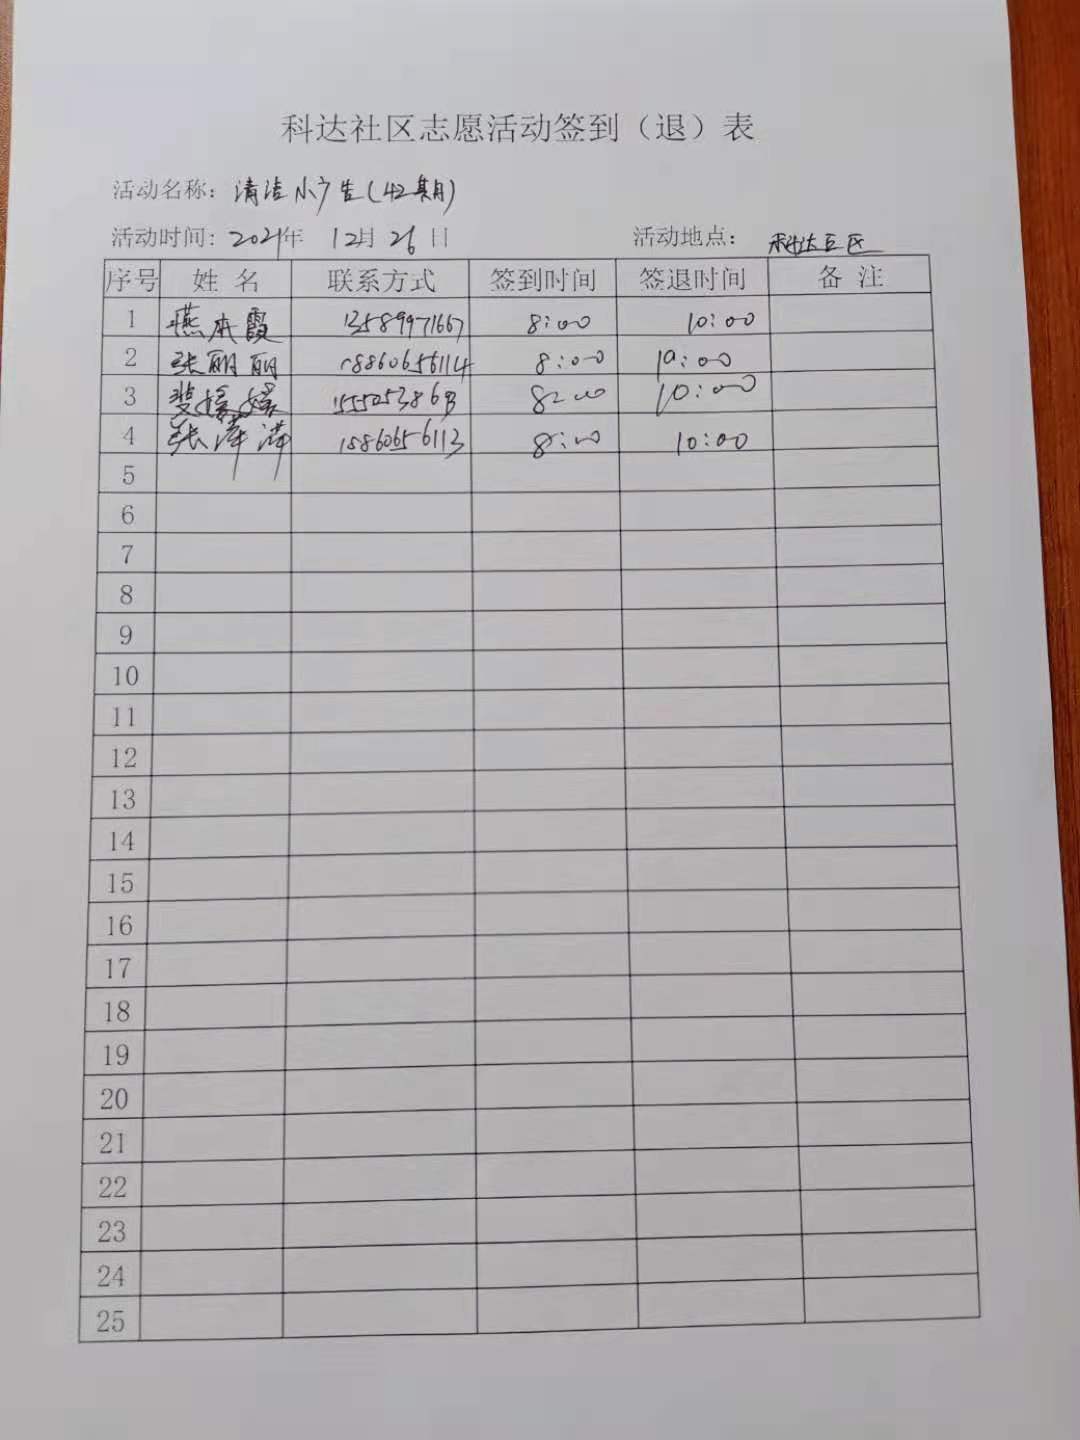 科达社区志愿活动签到（退）表
活动名称：清洁小卫生(42期)
活动时间：2021年 12月26日 活动地点：科达社区
序号 姓名 联系方式 签到时间 签退时间 备注
1 燕本霞 13589971667 8:00 10:00
2 张丽丽 18860656114 8:00 10:00
3 媛媛 8:00 10:00
4 张萍萍 18860656113 8:00 10:00
5
6
7
8
9
10
11
12
13
14
15
16
17
18
19
20
21
22
23
24
25